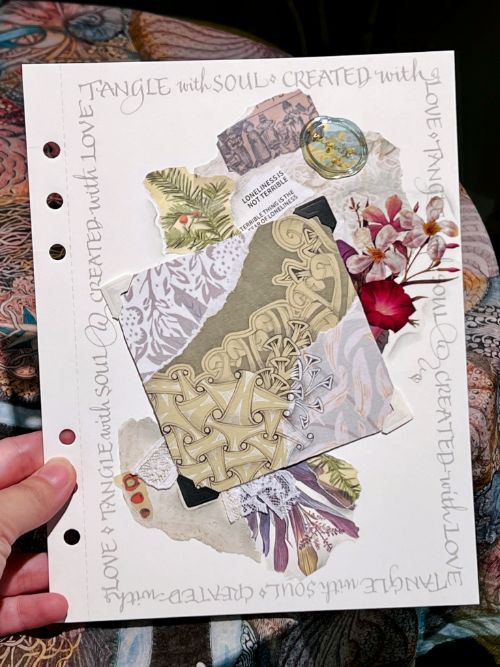 TANGLE with SOUL ⬥ CREATED with LOVE ⬥ TANGLE with SOUL & CREATED with LOVE
TANGLE with SOUL ⬥ CREATED with LOVE ⬥ TANGLE with SOUL & CREATED with LOVE
LONELINESS IS
NOT TERRIBLE
TERRIBLE THING IS THE
OF LONELINESS